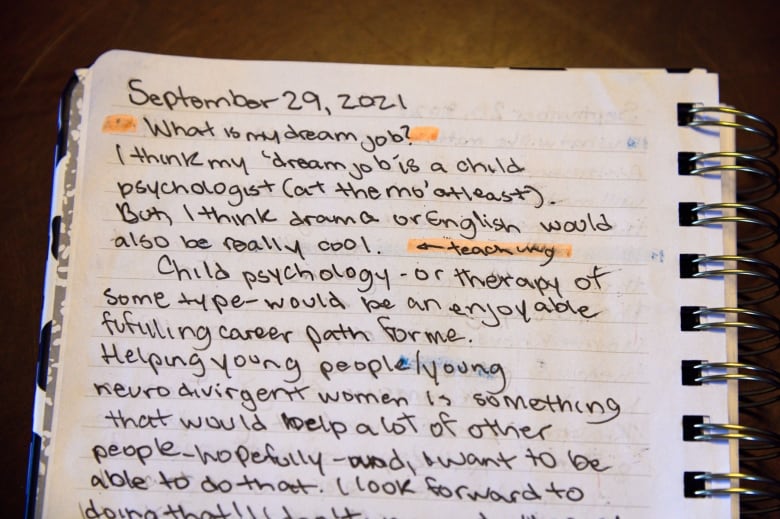 September 29, 2021
What is my dream job?
I think my 'dream job' is a child
psychologist (at the mo' atleast).
But, I think drama or English would
also be really cool. ← teaching
Child psychology - or therapy of
some type - would be an enjoyable
fufulling career path for me.
Helping young people/young
neurodivirgent women is something
that would help a lot of other
people - hopefully - and, I want to be
able to do that. I look forward to
doing that! I don't